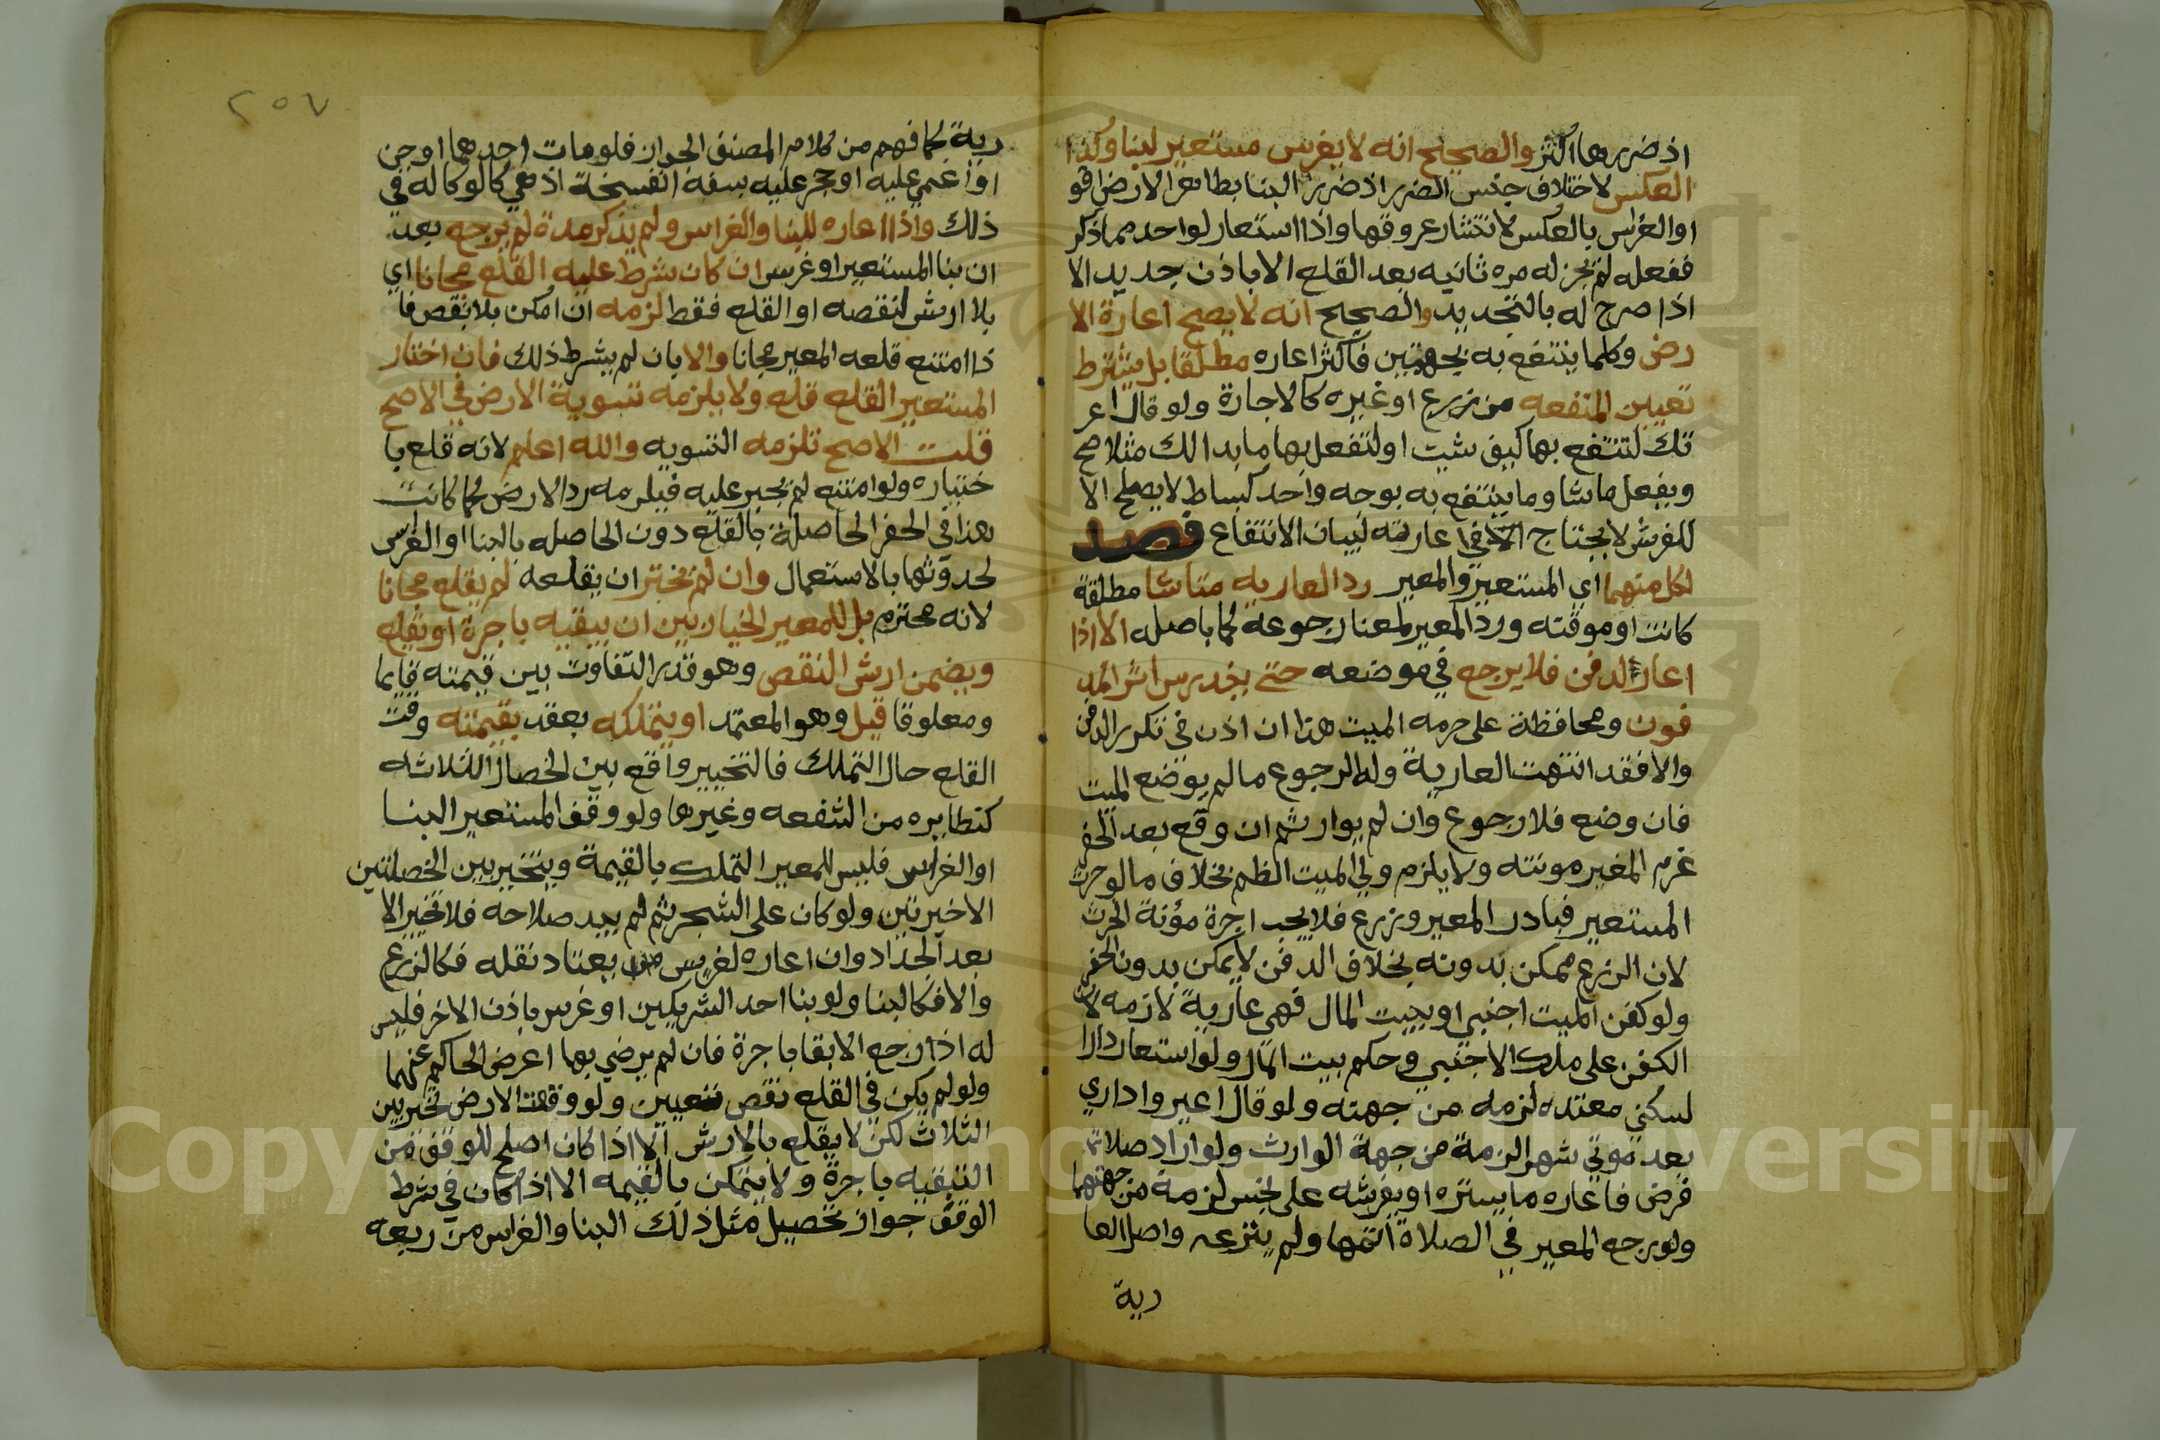 اذ ضررها اكثر والصحيح انه لا يغرس مستعير لبنا وكذا
العكس لاختلاف جنس الضرر اذ ضرر البنا بظاهر الارض اقو
او الغراس بالعكس لانتشار عروقها واذا استعار لواحد مما ذكر
ففعله لم يجز له مره ثانيه بعد القلع الا باذن جديد الا
اذا صرح له بالتجديد والصحيح انه لا يصح اعارة الا
رض وكلما ينتفع به بجهتين فاكثر اعاره مطلقا بل يشترط
تعيين المنفعه من زرع او غيره كالاجارة ولو قال اعر
تك لتنتفع بها كيف شيت او لتفعل بها ما بدا لك مثلا صح
ويفعل ما شا وما ينتفع به بوجه واحد كبساط لا يصلح الا
للفرش لا يحتاج في اعارته لبيان الانتفاع فصل
لكل منهما اي المستعير والمعير رد العاريه متا شا مطلقة
كانت او موقته ورد المعير لمعنا رجوعه كما باصله الا اذا
اعار لدفن فلا يرجع في موضعه حتى يندرس اثر المد
فون ومحافظة على حرمه الميت هذا ان اذن في تكرر الدفن
والا فقد انتهت العارية وله الرجوع ما لم يوضع الميت
فان وضع فلا رجوع وان لم يوار ثم ان وقع بعد الحفر
غرم المعير مونته ولا يلزم ولي الميت الطم بخلاف ما لو حرث
المستعير فبادر المعير وزرع فلا يجب اجرة مؤنة الحرث
لان الزرع ممكن بدونه بخلاف الدفن لا يمكن بدون الحفر
ولو كفن الميت اجنبي او ببيت المال فهي عارية لازمه لان
الكفن على ملك الاجنبي وحكم بيت المال ولو استعار دارا
لسكني معتده لزمه من جهته ولو قال اعيروا داري
بعد موتي شهر الزمة من جهة الوارث ولو اراد صلاة
فرض فاعاره ما يستره او يفرشه على نجس لزمة من جهتهما
ولو رجع المعير في الصلاة اتمها ولم ينزعه واصل العا
رية
٢٥٧
رية كما فهم من كلام المصنف الجواز فلو مات احدهما او جن
او اغمي عليه او حجر عليه بسفه انفسخة اذ هي كالوكاله في
ذلك واذا اعاره للبنا والغراس ولم يذكر مدة لم يرجع بعد
ان بنا المستعير او غرس ان كان شرط عليه القلع مجانا اي
بلا ارش لنقصه او القلع فقط لزمه ان امكن بلا نقص فا
ذا امتنع قلعه المعير مجانا والا بان لم يشرط ذلك فان اختار
المستعير القلع قلع ولا يلزمه تسوية الارض في الاصح
قلت الاصح تلزمه التسويه والله اعلم لانه قلع با
ختياره ولو امتنع لم يجبر عليه فيلزمه رد الارض كما كانت
هذا في الحفر الحاصلة بالقلع دون الحاصله بالبنا او الغراس
لحدوثها بالاستعمال وان لم يختر ان يقلعه لم يقلع مجانا
لانه محترم بل للمعير الخيار بين ان يبقيه باجرة او يقلع
ويضمن ارش النقص وهو قدر التفاوت بين قيمته قايما
ومعلوقا قيل وهو المعتمد او يتملكه بعقد بقيمته وقت
القلع حال التملك فالتخيير واقع بين الخصال الثلاثه
كنظايره من الشفعه وغيرها ولو وقف المستعير البنا
او الغراس فليس للمعير التملك بالقيمة ويتخير بين الخصلتين
الاخيرتين ولو كان على الشجر ثمر لم يبد صلاحه فلا تخيير الا
بعد الجذاد وان اعاره لغرس يعتاد نقله فكالزرع
والا فكالبنا ولو بنا احد الشريكين او غرس باذن الاخر فليس
له اذا رجع الا بقا باجرة فان لم يرضي بها اعرض الحاكم عنهما
ولو لم يكن في القلع نقص تعين ولو وقفت الارض تخير بين
الثلاث لكن لا يقلع بالارش الا اذا كان اصلح للوقف من
التبقيه باجرة ولا يتمكن بالقيمه الا اذا كان في شرط
الوقف جواز تحصيل مثل ذلك البنا والغراس من ريعه
Copyright © King Saud University